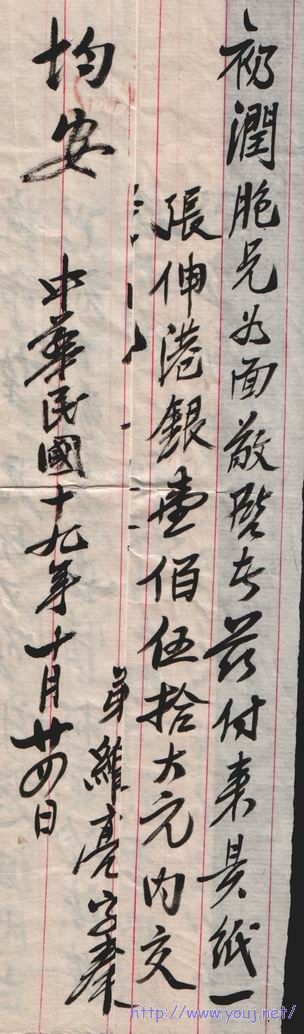 礽潤胞兄如面敬啓者茲付來昃紙一
張伸港銀壹佰伍拾大元內交
弟維亮字奉
均安
中華民國十九年十月廿四日
http://www.youj.net/